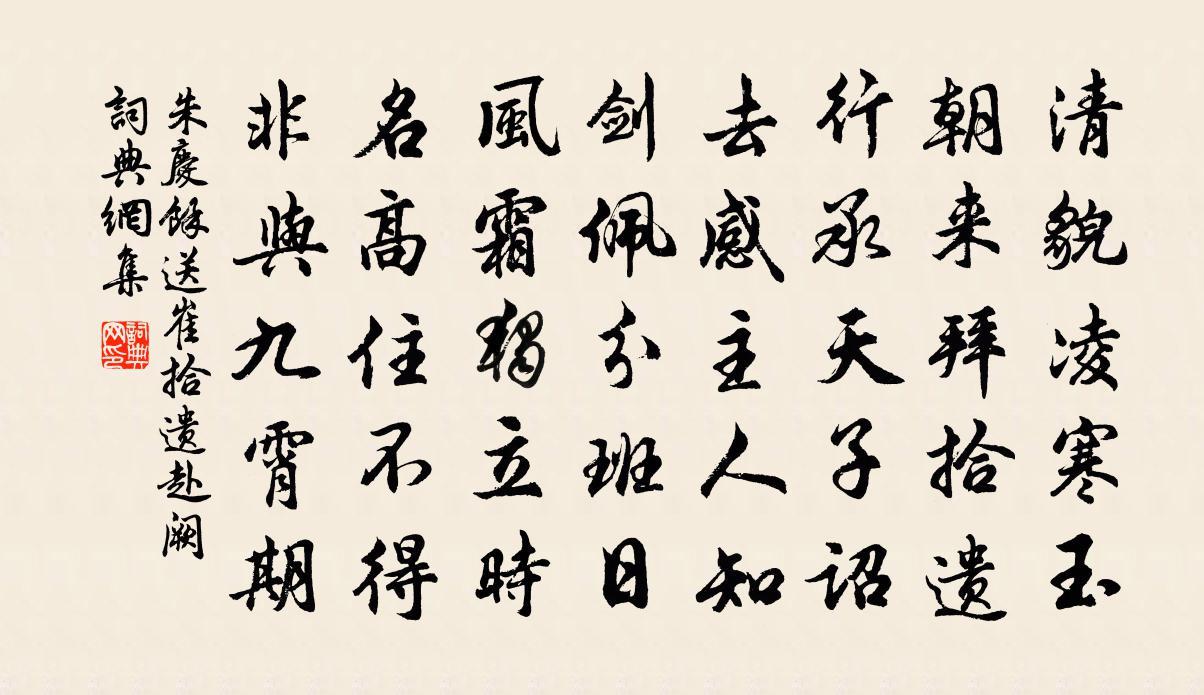 清貌凌寒玉
朝来拜拾遗
行承天子詔
去感主人知
劍佩分班日
風霜獨立時
名高住不得
非與九霄期
朱慶餘送崔拾遗赴阙
詞典網集
詞典网印